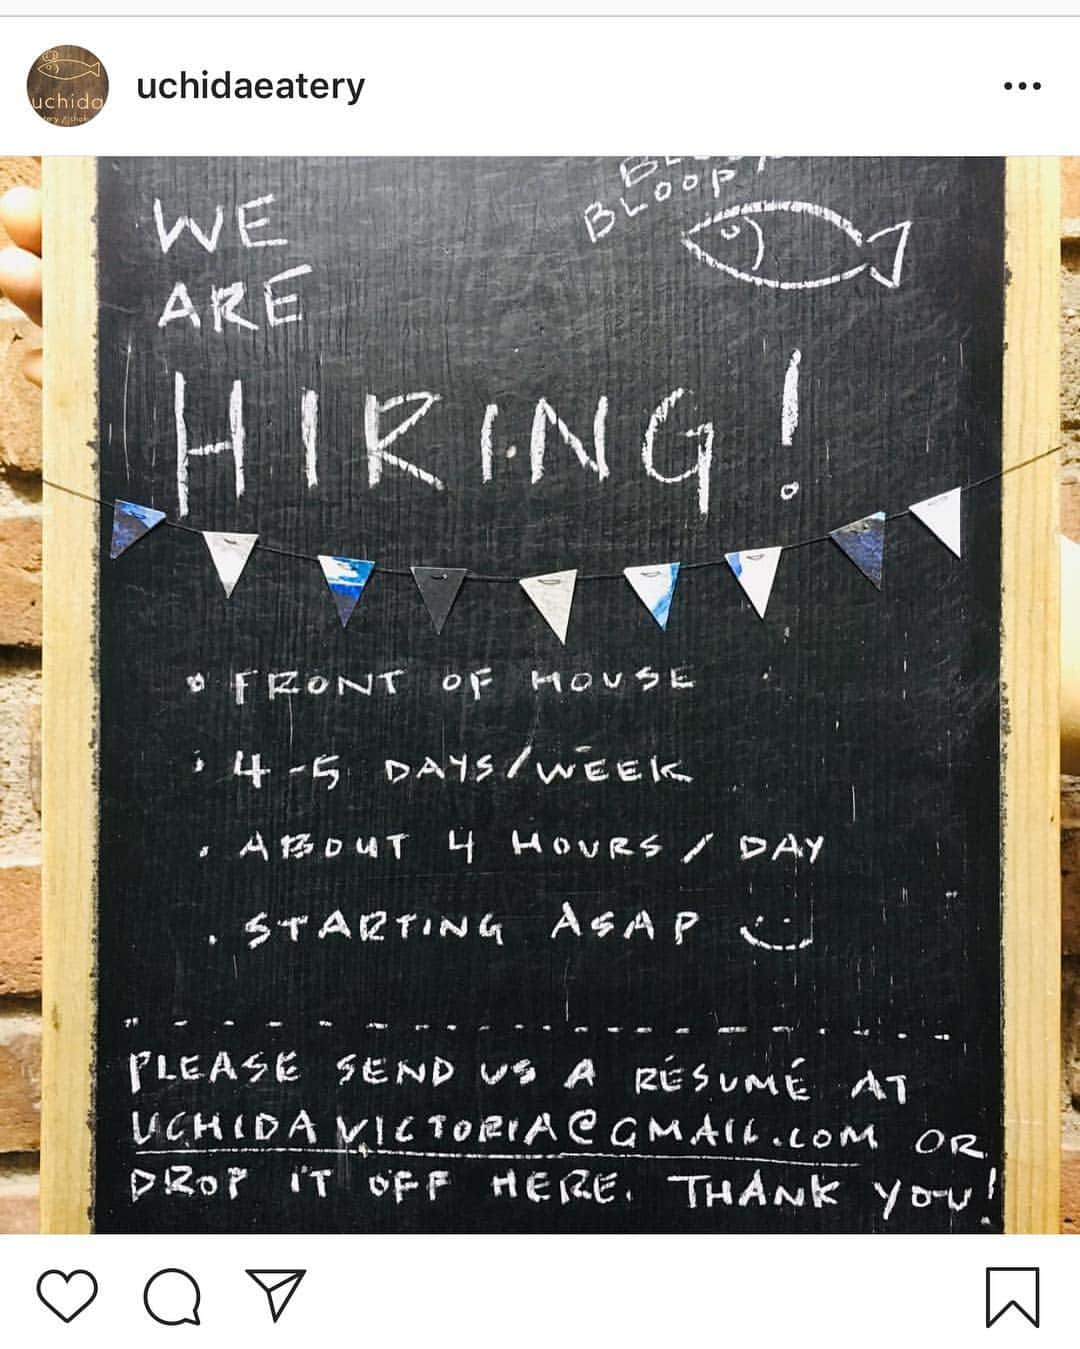 uchida
uchidaeatery
BLOOP
WE
ARE
HIRING!
• FRONT OF HOUSE
• 4-5 DAYS/WEEK
• ABOUT 4 HOURS / DAY
• STARTING ASAP :)
PLEASE SEND US A RÉSUMÉ AT
UCHIDAVICTORIA@GMAIL.COM OR
DROP IT OFF HERE. THANK YOU!